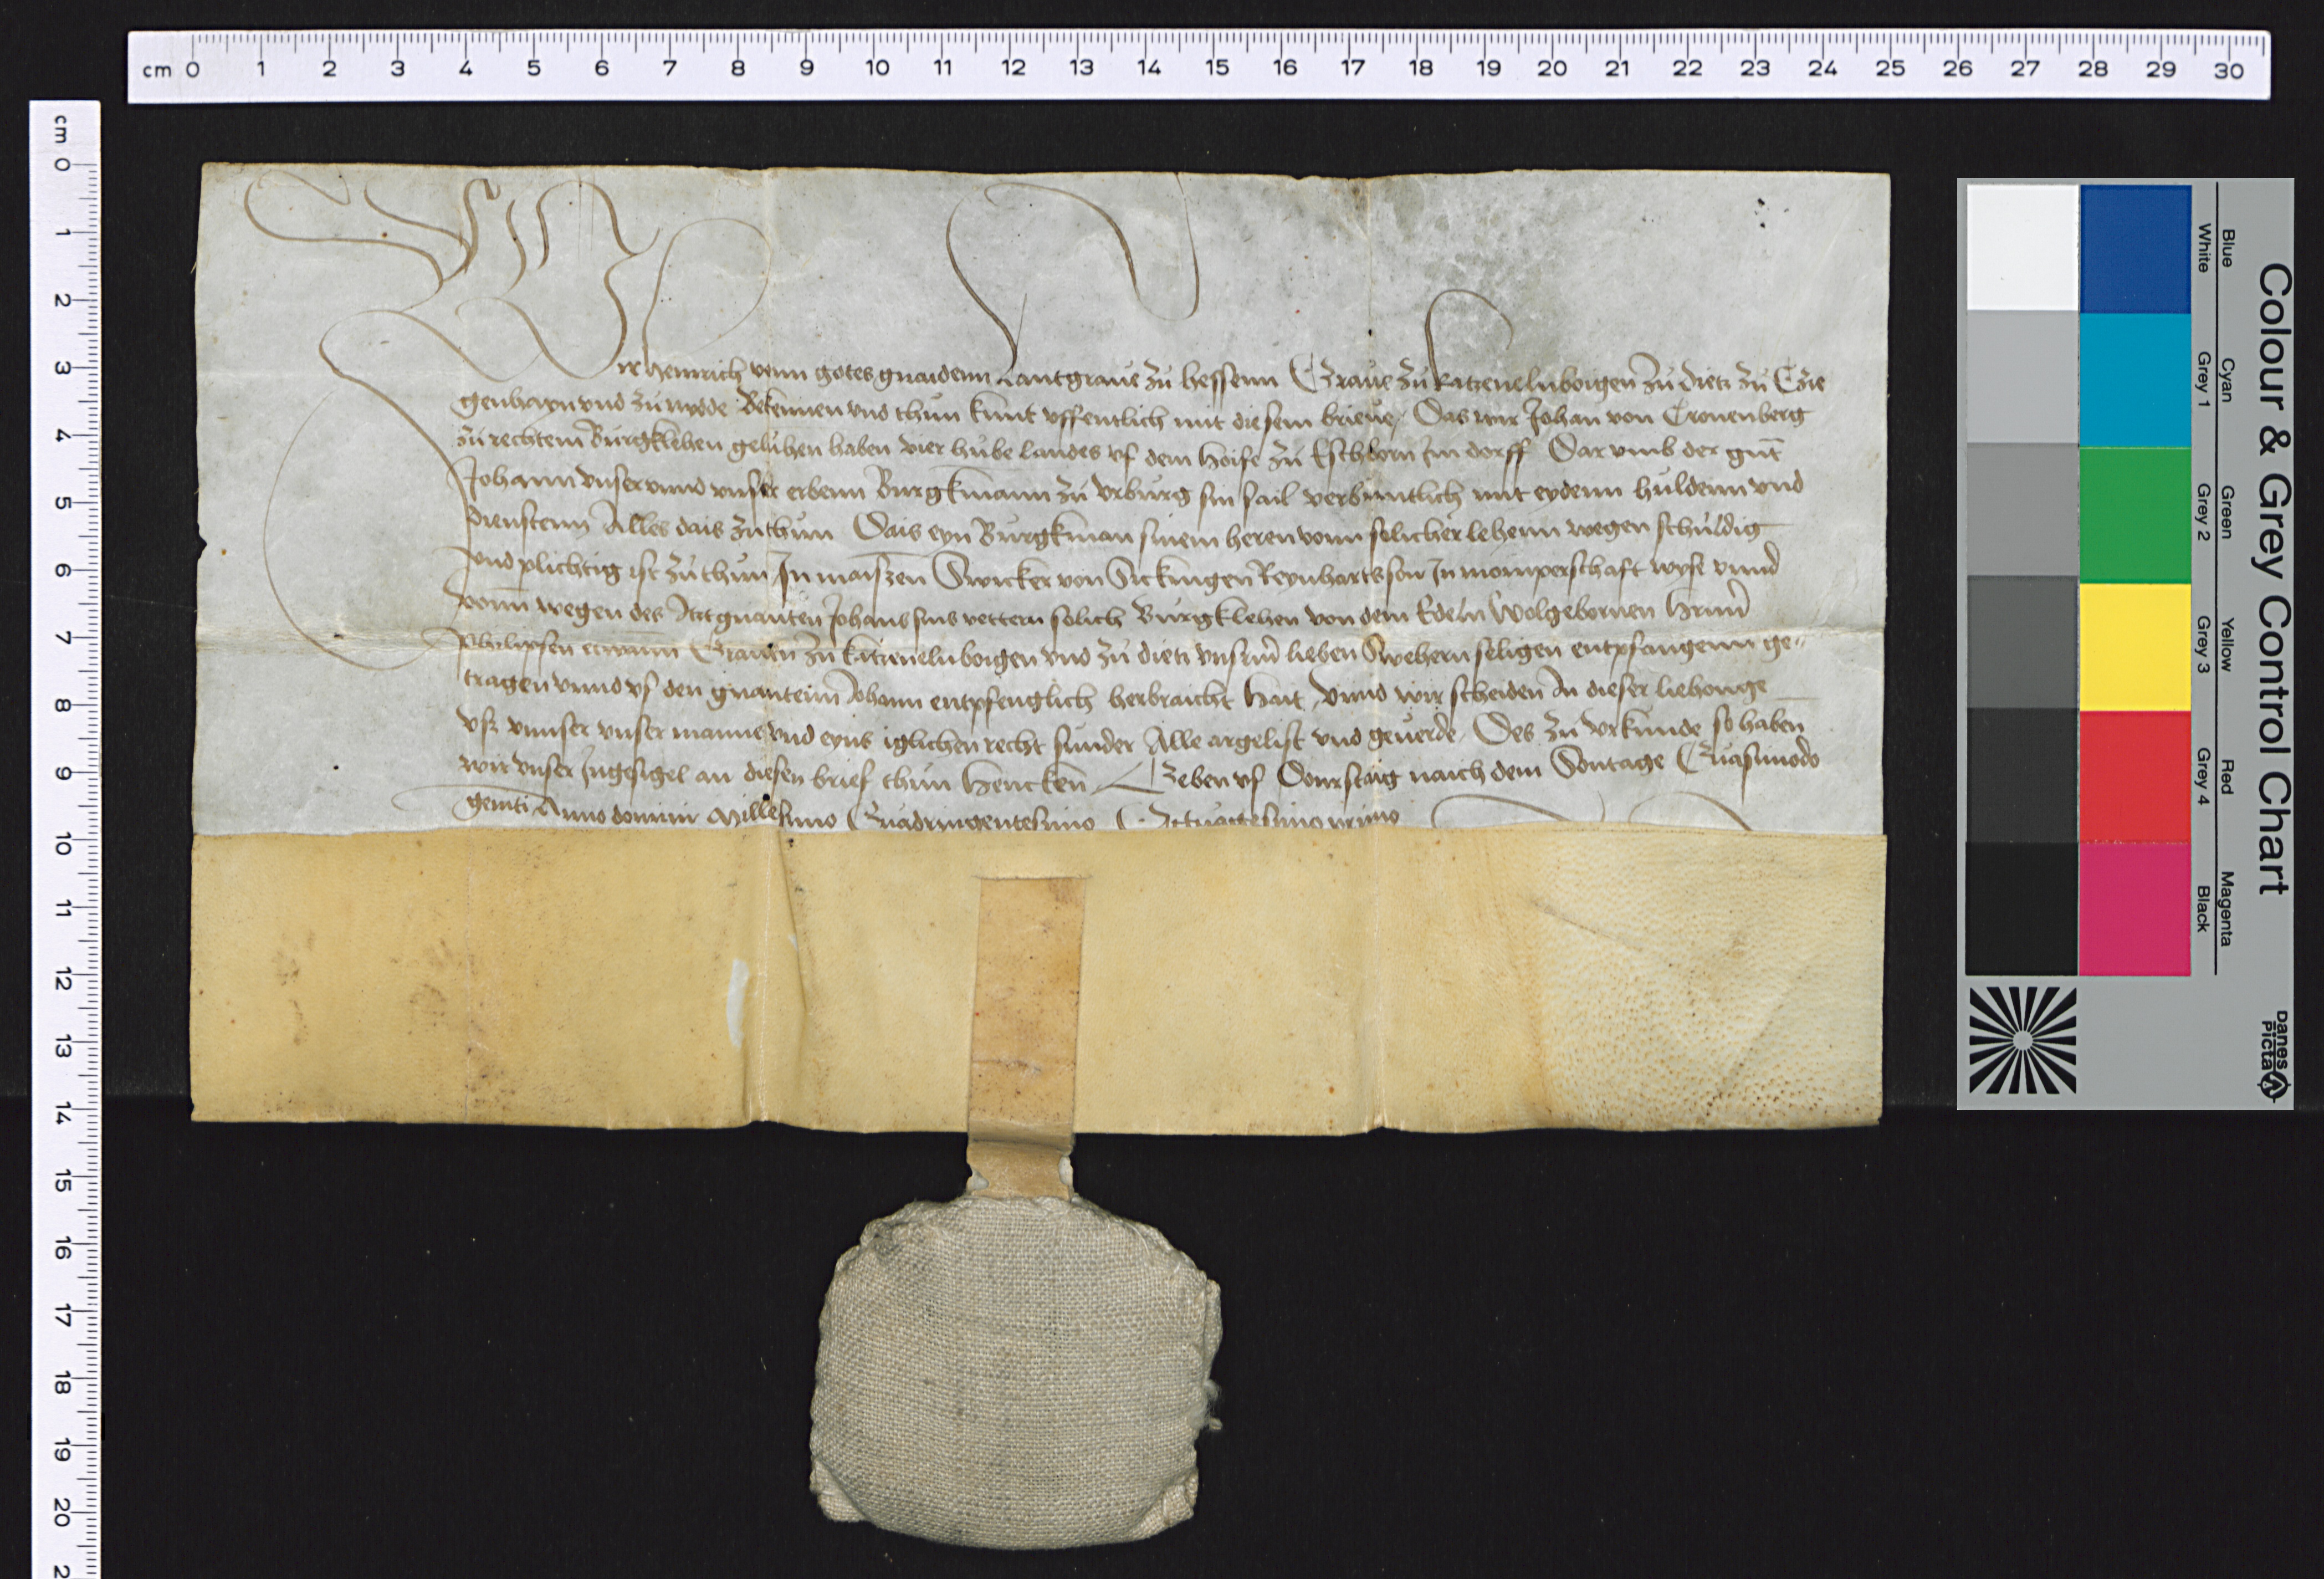 cm 0 1 2 3 4 5 6 7 8 9 10 11 12 13 14 15 16 17 18 19 20 21 22 23 24 25 26 27 28 29 30
cm 0 1 2 3 4 5 6 7 8 9 10 11 12 13 14 15 16 17 18 19 20 2
Wir Heinrich vonn gotes gnaidenn Lantgraue zu hessenn Graue zu katzenelnboigen zu dietz zu Czie
genhayn vnd zu nydde Bekennen vnd thun kunt vffentlich mit diesem brieue, Das wir Johan von Cronenberg
zu rechtem Burgklehen geluhen haben vier hube landes vf dem hoife zu Eschborn Im dorff Dar vmb der gnt
Johann vnser vnnd vnser erbenn Burgkmann zu vrburg sin sail verbuntlich mit eydenn huldenn vnd
dienstenn Alles dais zuthun Dais eyn Burgkman sinem heren vonn solicher lehenn wegen schuldig
vnd plichtig ist zu thun In maiszen Swicker von Sickingen Reynharts son In momperschaft wyse vnnd
vonn wegen des Itzgnanten Johans sins vettern solich Burgklehen von dem Edeln wolgebornen hrnn
Philipsen Grauen zu katzenelnboigen vnd zu dietz vnsrm lieben Swehern seligen entpfangenn ge"
tragen vnnd vf den gnantenn Johann entpfenglich herbraicht hait, vnnd wir scheiden In dieser liehonge
vsz vnnser vnser manne vnd eyns iglichen recht sunder Alle argelist vnd geuerde, Des zu vrkunde so haben
wir vnser Ingesigel an diesen brief thun hencken Geben vf Donrstaig naich dem Sontage Quasimodo
geniti Anno domini Millesimo Quadringentesimo Octuagesimo primo
Colour & Grey Control Chart
Blue Cyan Green Yellow Red Magenta
White Grey 1 Grey 2 Grey 3 Grey 4 Black
Danes
Picta